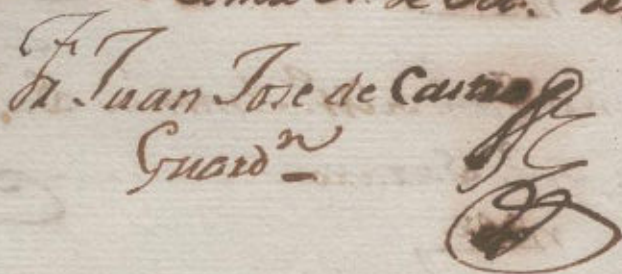 de
Fr. Juan Jose de Castro
Guardn